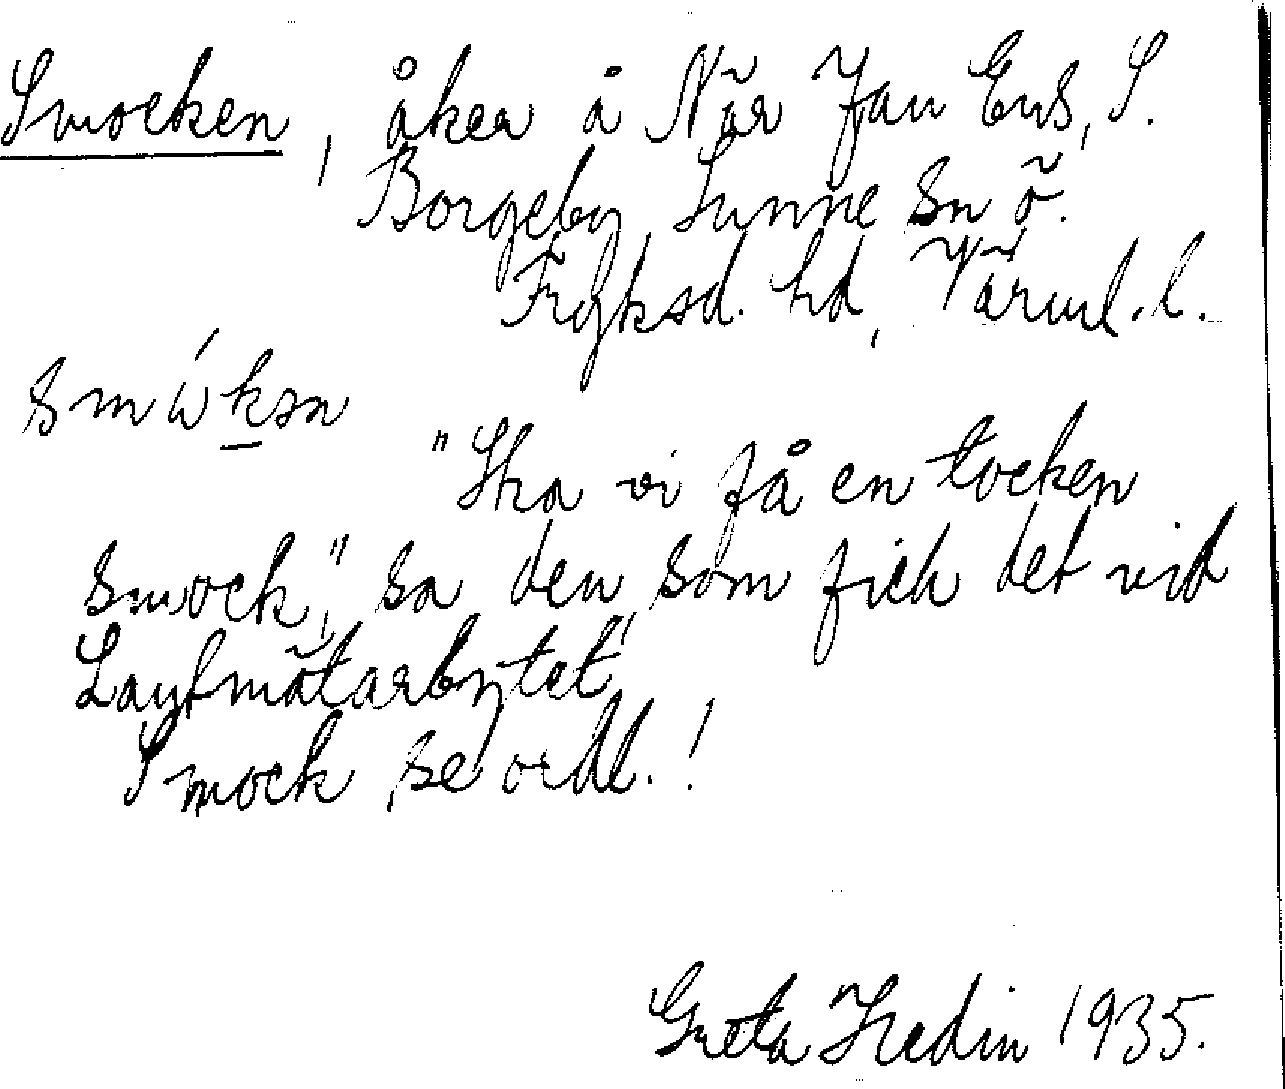 Smocken, åker å När Jan Ers, S.
Borgeby, Sunne sn ö.
Fryksd. hd, Värml. l.
"Ska vi få en tocken
smock", sa den, som fick det vid
Lantmätarbytet,
Smock, se ordl.!
Greta Hedin 1935.